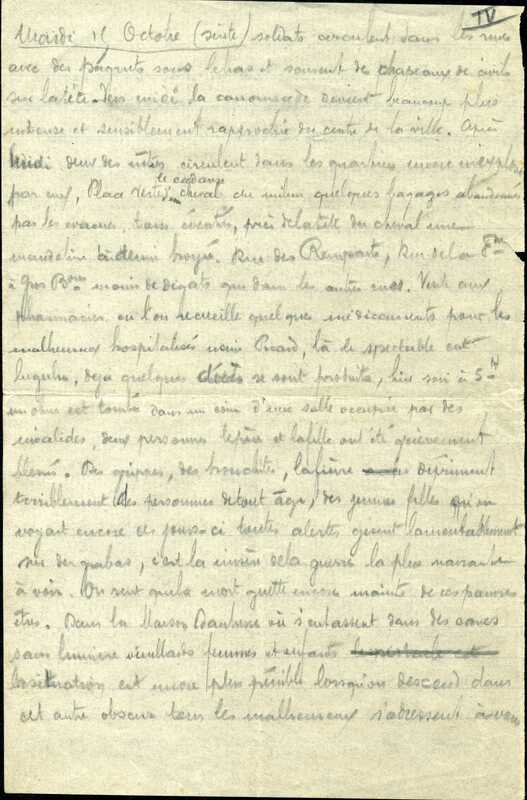 IV
Mardi 15 Octobre (suite) soldats circulent dans les rues
avec des paquets sous le bras et souvent des chapeaux de civils
sur la tête. Vers midi la canonnade devient beaucoup plus
intense et sensiblement rapprochée du centre de la ville. Après
Midi deux des nôtres circulent dans les quartiers encore inexplorés
par eux, Place Verte, le cadavre d'un cheval au milieu quelques bagages abandonnés
par les évacués, tous éventrés, près de la tête du cheval une
mandoline à demi broyée. Rue des Remparts, Rue de la
à Gros moins de dégats que dans les autres rues. Visite aux
pharmacies où l'on recueille quelques médicaments pour les
malheureux hospitalisés usine Picard, là le spectacle est
lugubre, déjà quelques décès se sont produits, hier soir à 5 H
un obus est tombé dans un coin d'une salle occupée par des
invalides, deux personnes le père et la fille ont été grièvement
blessés. Des grippes, des bronchites, la fièvre dépriment
terriblement des personnes de tout âge, des jeunes filles qu'on
voyait encore ces jours-ci toutes alertes gisent lamentablement
sur des grabas, c'est la misère de la guerre la plus navrante
à voir. On sent que la mort guette encore maints de ces pauvres
êtres. Dans la Maison où s'entassent dans des caves
sans lumière vieillards femmes et enfants le spectacle est
la situation est encore plus pénible lorsqu'on descend dans
cet antre obscur tous les malheureux s'adressent à vous